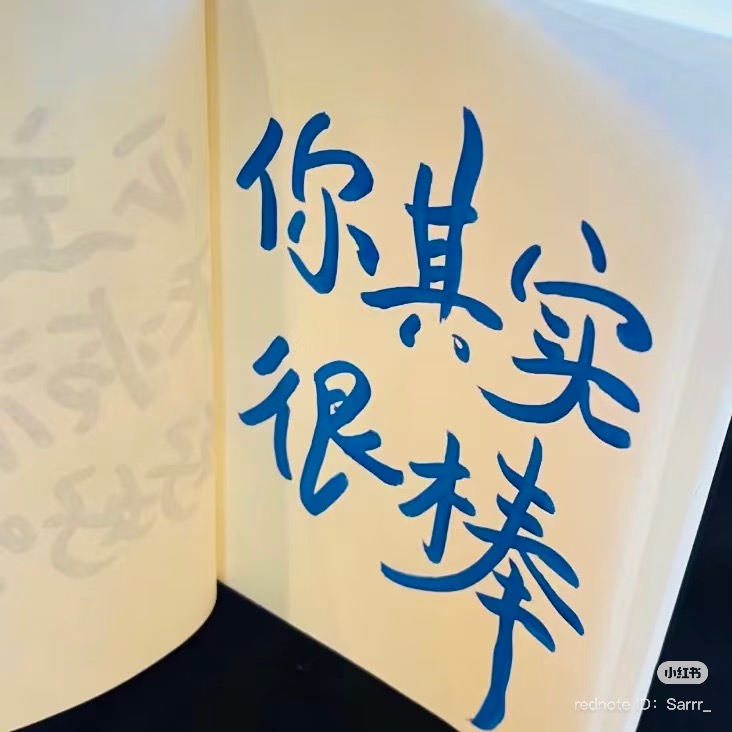 你其实
很棒
小红书
rednote ID: Sarrr_